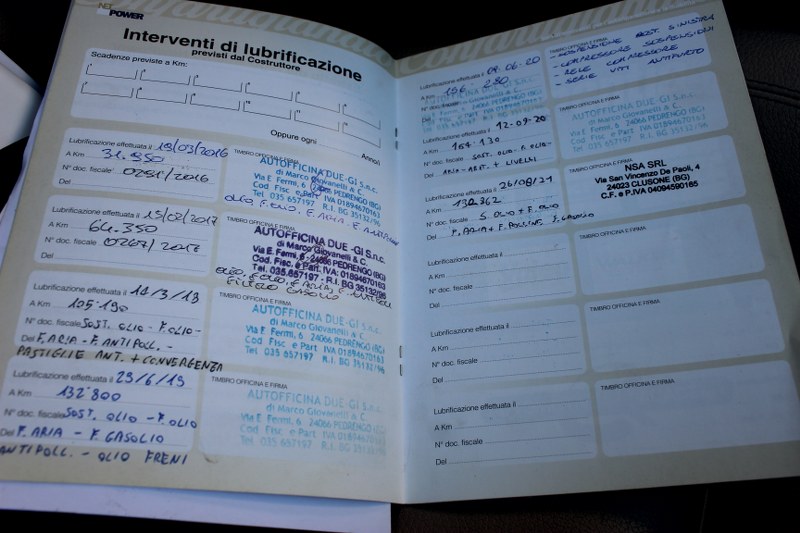 POWER
Interventi di lubrificazione
previsti dal Costruttore
Scadenze previste a Km:
Oppure ogni Anno/i
Lubrificazione effettuata il 19/03/2016
A Km 31.950
N° doc. fiscale 0291/2016
Del
TIMBRO OFFICINA E FIRMA
AUTOFFICINA DUE-GI S.n.c.
di Marco Giovanelli & C.
Via E. Fermi, 6 24066 PEDRENGO (BG)
Cod. Fisc e Part. IVA 01894670163
Tel. 035 657197 R.I. BG 35132/96
OLIO, F. OLIO, F. ARIA, F. ANTIPOLLINE
Lubrificazione effettuata il 15/02/2017
A Km 64.350
N° doc. fiscale 0267/2017
Del
TIMBRO OFFICINA E FIRMA
AUTOFFICINA DUE -GI S.n.c.
di Marco Giovanelli & C.
Via E. Fermi, 6 - 24066 PEDRENGO (BG)
Cod. Fisc. e Part. IVA 01894670163
Tel. 035.657197 - R.I. BG 35132/96
OLIO, F. OLIO, F. ARIA, F. ANTIPOLL
FILTRO GASOLIO
Lubrificazione effettuata il 14/3/18
A Km 105.190
N° doc. fiscale SOST. OLIO - F. OLIO -
Del F. ARIA - F. ANTIPOLL. -
PASTIGLIE ANT. + CONVERGENZA
TIMBRO OFFICINA E FIRMA
AUTOFFICINA DUE-GI s.n.c.
di Marco Giovanelli & C.
Via E. Fermi, 6 24066 PEDRENGO (BG)
Cod. Fisc e Part. IVA 01894670163
Tel 035 657197 R.I. BG 35132/96
Lubrificazione effettuata il 29/6/19
A Km 132'800
N° doc. fiscale SOST. OLIO - F. OLIO
Del F. ARIA - F. GASOLIO
ANTIPOLL. - OLIO FRENI
TIMBRO OFFICINA E FIRMA
AUTOFFICINA DUE-GI s.n.c.
di Marco Giovanelli & C.
Via E. Fermi, 6 24066 PEDRENGO (BG)
Cod. Fisc e Part. IVA 01894670163
Tel 035 657197 R.I. BG 35132/96
Lubrificazione effettuata il 09-06-20
A Km 156 280
N° doc. fiscale
Del
AUTOFFICINA DUE-GI S.n.c.
di Marco Giovanelli & C.
TIMBRO OFFICINA E FIRMA
- SOSPENSIONE POST. SINISTRA
- COMPRESSORE SOSPENSIONI
- RELE COMPRESSORE
- SERIE VITI ANTIFURTO
Lubrificazione effettuata il 12-09-20
A Km 164.130
N° doc. fiscale SOST. OLIO - F. OLIO -
Del ARIA - ANT. + LIVELLI
TIMBRO OFFICINA E FIRMA
AUTOFFICINA DUE-GI S.n.c.
di Marco Giovanelli & C.
Via E. Fermi, 6 24066 PEDRENGO (BG)
Lubrificazione effettuata il 26/08/21
A Km
N° doc. fiscale S. OLIO + F. OLIO
Del F. ARIA +
TIMBRO OFFICINA E FIRMA
NSA SRL
Via San Vincenzo De Paoli, 4
24023 CLUSONE (BG)
C.F. e P.IVA 04094590165
Lubrificazione effettuata il
A Km
N° doc. fiscale
Del
TIMBRO OFFICINA E FIRMA
Lubrificazione effettuata il
A Km
N° doc. fiscale
Del
TIMBRO OFFICINA E FIRMA
Lubrificazione effettuata il
A Km
N° doc. fiscale
Del
TIMBRO OFFICINA E FIRMA